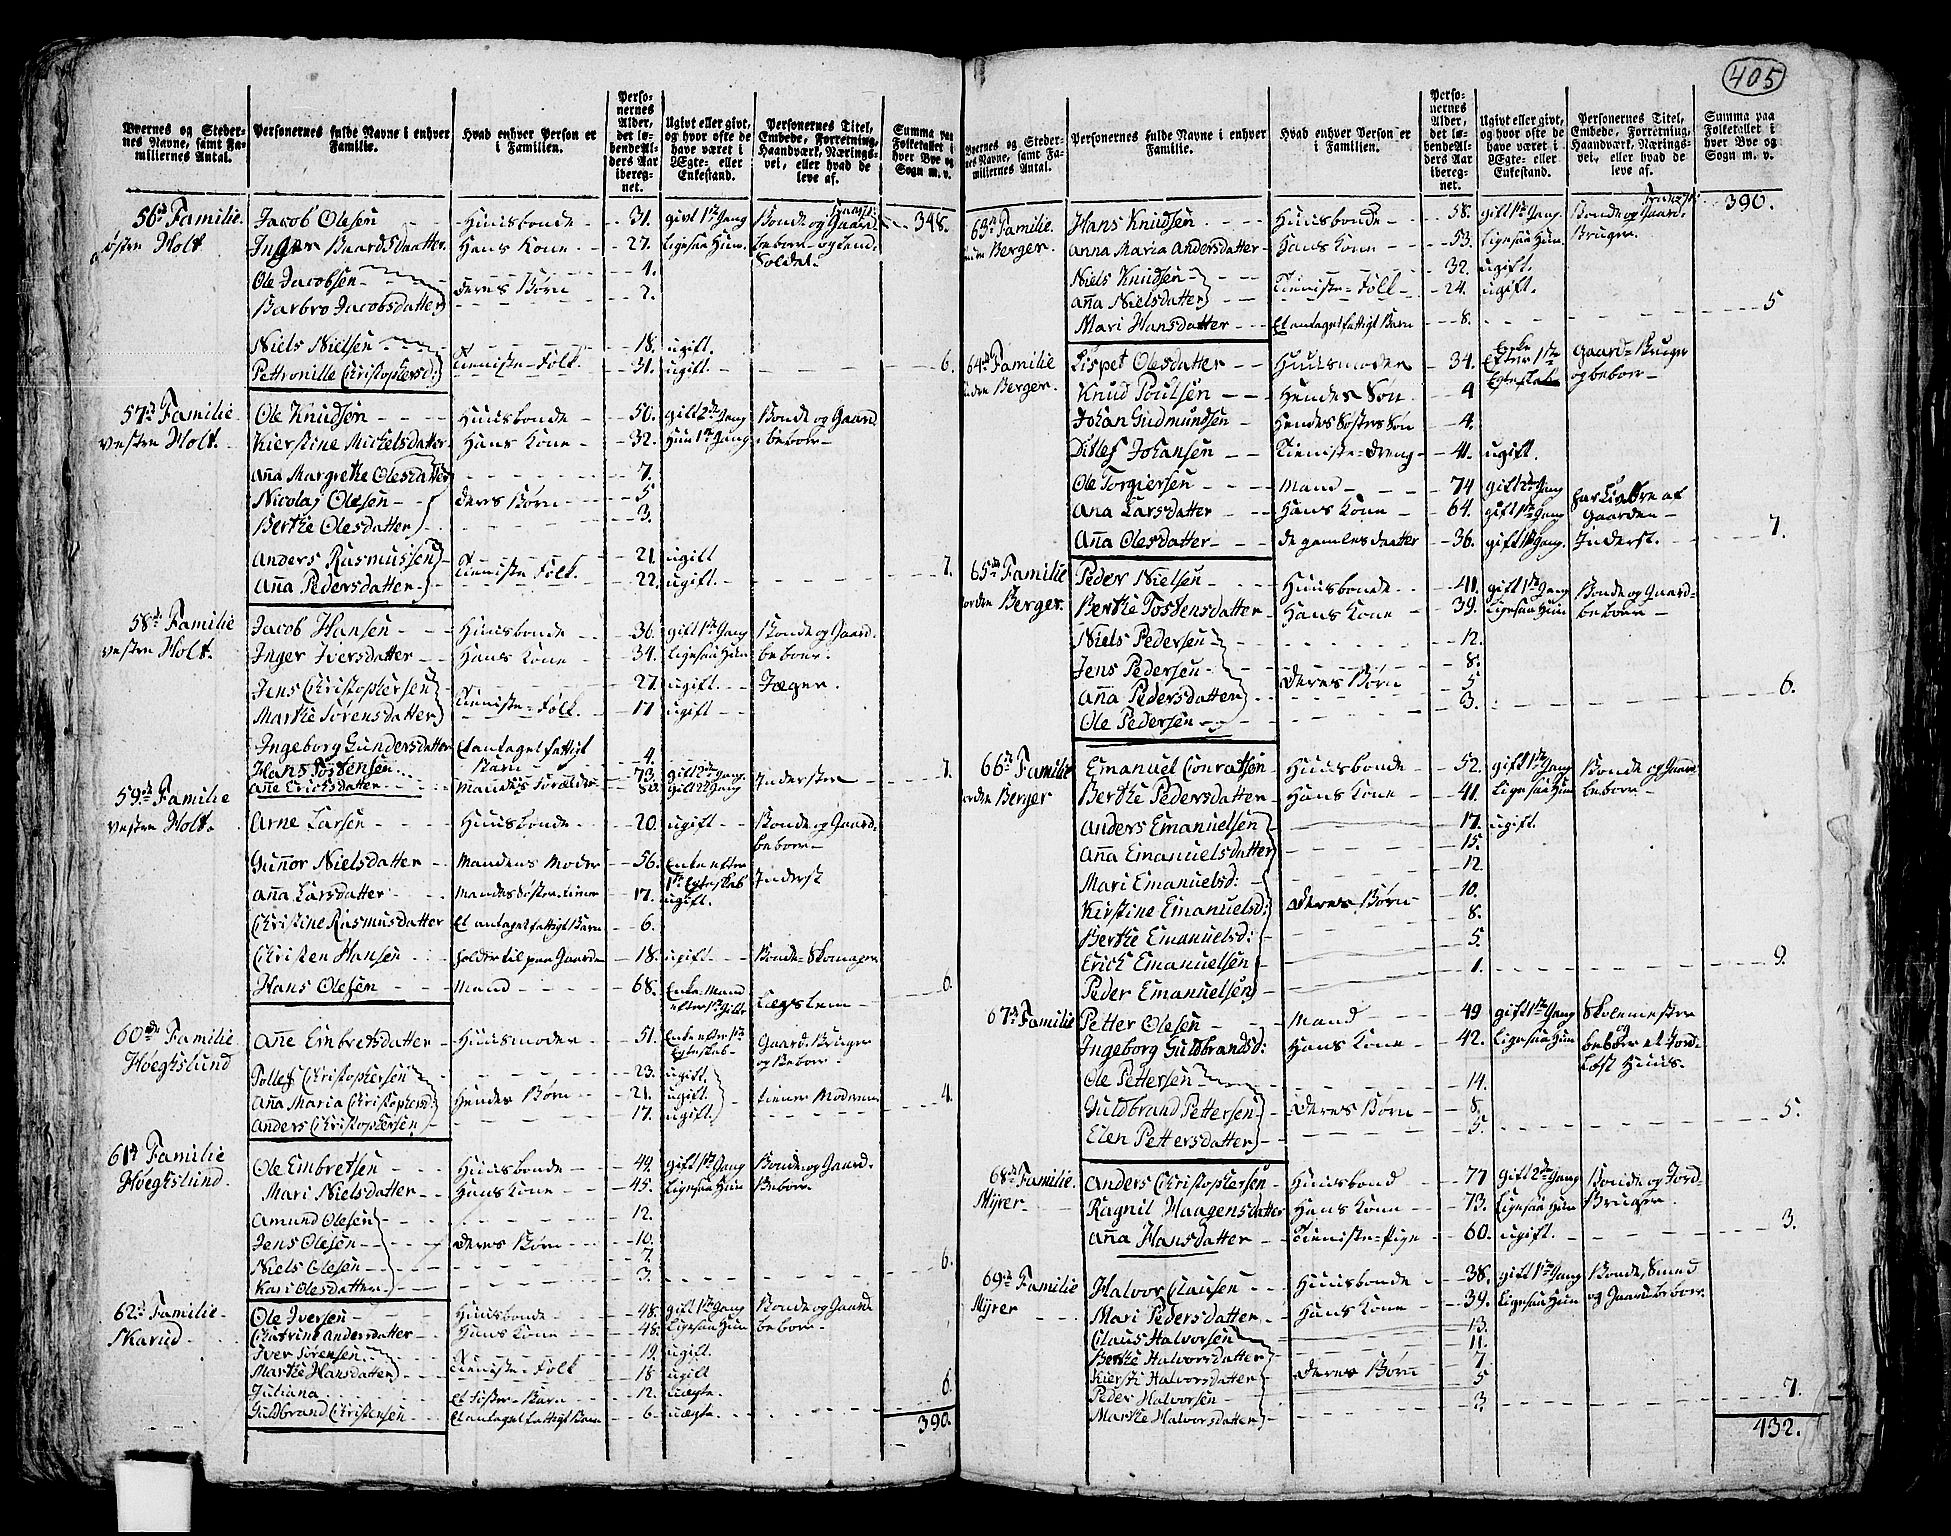 405
Byernes og Steder-nes Navne, samt Fa-miliernes Antal.
Personernes fulde Navne i enhver Familie.
Hvad enhver Person er i Familien.
Perso-nernes Alder, det lø-bende Al-ders Aar iberegnet.
Ugivt eller givt, og hvor ofte de have været i Ægte- eller Enkestand.
Personernes Titel, Embede, Forretning, Haandværk, Nærings-vei, eller hvad de leve af.
Summa paa Folketallet i hver Bye og Sogn m. v.
56de Familie. Jacob Olesen Huusbonde 31. givt 1ste Gang Bonde og Gaard- 348.
østen Holt. Inger Baardsdaatter Hans Kone 27. Ligesaa Hun beboer og Land Soldat.
Ole Jacobsen 4.
Barbro Jacobsdatter deres Børn 2.
Niels Nielsen 18. ugift.
Pettronille Christophersd: Tieniste-Folk 31. ugift. 6.
57de Familie Ole Knudsen Huusbonde 50. gift 2de Gang Bonde og Gaard
vestre Holt Kierstine Mickelsdatter Hans Kone 32. Hun 1ste Gang beboer
Aña Margrethe Olesdatter 7.
Nicolaj Olesen deres Børn 5
Berthe Olesdatter 3.
Anders Rasmussen 21. ugift
Aña Pedersdatter Tieniste Folk 22. ugift. 7.
58de Familie Jacob Hansen Huusbonde 36. gift 1ste Gang Bonde og Gaard.
vestre Holt. Inger Iversdatter Hans Kone 34. Ligesaa Hun beboer.
Jens Christophersen 27. ugift. Jæger.
Marthe Sørensdatter Tieniste-Folk 17 ugift
Ingeborg Gundersdatter Et antaget fattigt Barn 4.
Hans Tostensen 73. gift 2de Gang Inderster 7.
Ane Ericksdatter Mandens Forældre 80. gift 2de Gang
59de Familie vestre Holt. Arne Larsen Huusbonde 20. ugift Bonde og Gaard-beboer
Guñor Nielsdatter Mandens Moder 56. Enke efter 1ste Egteskab Inderst
Aña Larsdatter Mandes Søster tiener 17. ugift.
Christine Rasmusdatter Et antaget fattigt Barn 6.
Christen Hansen holder til paa Gaarden 18. ugift Bonde-Skomager
Hans Olesen Mand 68. Enke-Mand efter 1ste Gifte Lægslem 6.
60de Familie Ane Embretsdatter Huusmoder 51. Enke efter 1ste Egteskab Gaard-Bruger og Beboer
Høegtslund Tollef Christophersen 23. ugift.
Aña Maria Christophersd: Hendes Børn 21. ugift tiener Moderen 4.
Anders Christophersen 17. ugift
61de Familie Ole Embretsen Huusbonde 49. gift 1ste Gang Bonde og Gaard-
Høegtslund. Mari Nielsdatter Hans Kone 45. Ligesaa Hun Beboer
Amund Olesen 12.
Jens Olesen deres Børn 10.
Niels Olesen 7. 6.
Kari Olesdatter 3.
62de Familie Ole Iversen Huusbonde 48. gift 1ste Gang Bonde og Gaard
Skarud Cathrine Andersdatter Hans Kone 48. Ligesaa Hun beboer
Iver Sørensen 19. ugift
Marthe Hansdatter Tieniste-Folk 18 ugift
Juliana Et Foster-Barn 12. uægte. 6.
Guldbrand Christensen Et antaget fattigt Barn 6. uægte.
390.
Byernes og Steder-nes Navne, samt Fa-miliernes Antal.
Personernes fulde Navne i enhver Familie.
Hvad enhver Person er i Familien.
Perso-nernes Alder, det lø-bende Al-ders Aar iberegnet.
Ugivt eller givt, og hvor ofte de have været i Ægte- eller Enkestand.
Personernes Titel, Embede, Forretning, Haandværk, Nærings-vei, eller hvad de leve af.
Summa paa Folketallet i hver Bye og Sogn m. v.
63de Familie. Hans Knudsen Huusbonde 58. gift 1ste Gang. Bonde og Gaard- 390.
Berger. Anna Maria Andersdatter Hans Kone 53. Ligesaa Hun Bruger.
Niels Knudsen 32. ugift.
Aña Nielsdatter Tieniste-Folk 24. ugift.
Mari Hansdatter Et antaget fattigt Barn 8. 5
64de Familie Lispet Olesdatter Huusmoder 34. Enke Efter 1ste Egteskab Gaard-Bruger
Berger. Knud Poulsen Hendes Søn 4 og beboer
Johan Gudmundsen Hendes Søsters Søn 4.
Ditlef Johansen Tieniste-Dreng 41. ugift.
Ole Torgiersen Mand 74 gift 2de Gang har Livøre af Gaarden
Ana Larsdatter Hans Kone 64. gift 1ste Gang
Aña Olesdatter de gamles datter 36. gift 1ste Gang. Inderst. 7.
65de Familie Peder Nielsen Huusbonde 41. gift 1ste Gang Bonde og Gaard-
Berger. Berthe Tostensdatter Hans Kone 39. Ligesaa Hun beboer
Niels Pedersen 12.
Jens Pedersen 8.
Aña Pedersdatter Deres Børn 5 6.
Ole Pedersen 3.
66de Familie Emanuel Conratsen Huusbonde 52. gift 1ste Gang Bonde og Gaard
Berger Berthe Pedersdatter Hans Kone 41. Ligesaa Hun beboer
Anders Emanuelsen 17. ugift.
Aña Emanuelsdatter 15.
Mari Emanuelsd: 12
Kirstine Emanuelsd: Deres Børn 10.
Berthe Emanuelsd: 8.
Erich Emanuelsen 5. 9.
Peder Emanuelsen 1.
67de Familie Petter Olesen Mand 49 gift 1ste Gang Skolemester
Ingeborg Guldbrandsd: Hans Kone 42. Ligesaa Hun og beboer et Jord-Løst Huus.
Ole Pettersen 14.
Guldbrand Pettersen Deres Børn 8. 5.
Elen Pettersdatter 5.
68de Familie. Anders Christophersen Huusbond 77 gift 2de Gang Bonde og Jord-
Myrer Ragnil Haagensdatter Hans Kone 73. Ligesaa Hun Bruger
Aña Hansdatter Tieniste-Pige 60. ugift. 3.
69de Familie Halvor Clausen Huusbonde 38. gift 1ste Gang Bonde, Smed
Myrer Mari Pedersdatter Hans Kone 39. Ligesaa Hun og Gaard beboer.
Claus Halvorsen 13.
Berthe Halvorsdatter 11.
Kiersti Halvorsdatter Deres Børn 7
Peder Halvorsen 5 7.
Marthe Halvorsdatter 3.
432.